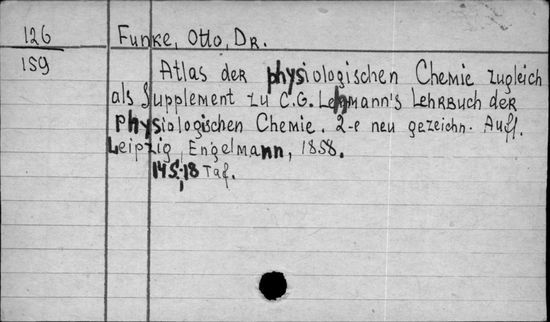 126 Funke, Otto, Dr.
159 Atlas der physiologischen Chemie zugleich
als Supplement zu C.G. Lehmann's Lehrbuch der
physiologischen Chemie. 2-e neu gezeichn. Aufl.
Leipzig, Engelmann, 1858.
14 S.; 18 Taf.